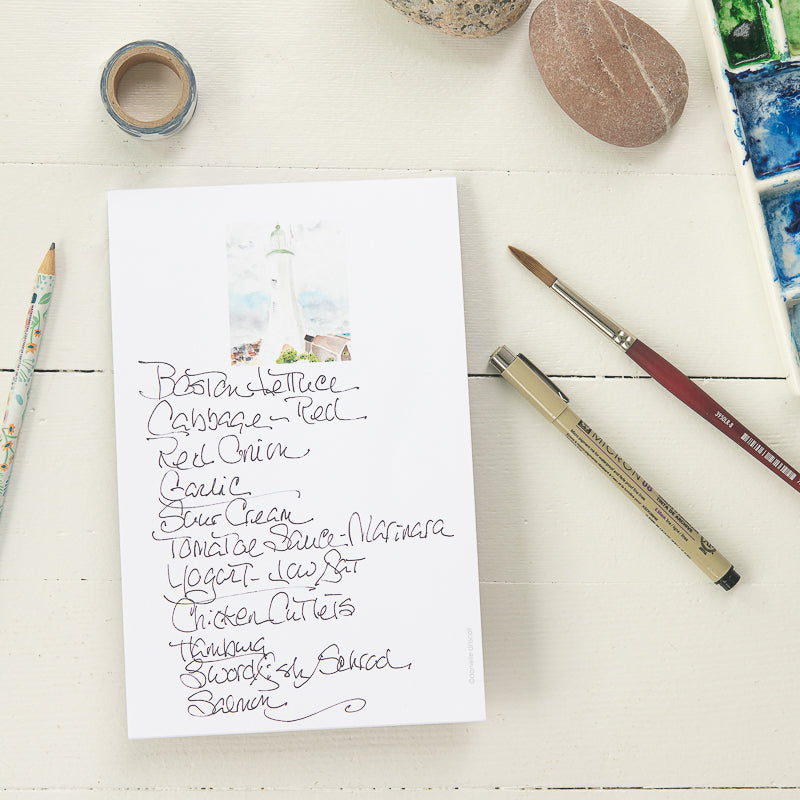 Boston Lettuce
Cabbage - Red
Red Onion
Garlic
Sour Cream
Tomatoe Sauce - Marinara
Yogart - Low Fat
Chicken Cutlets
Hamburg
Swordfish/Schrod
Salmon
©danielle driscoll
MICRON 05
3950LR-8